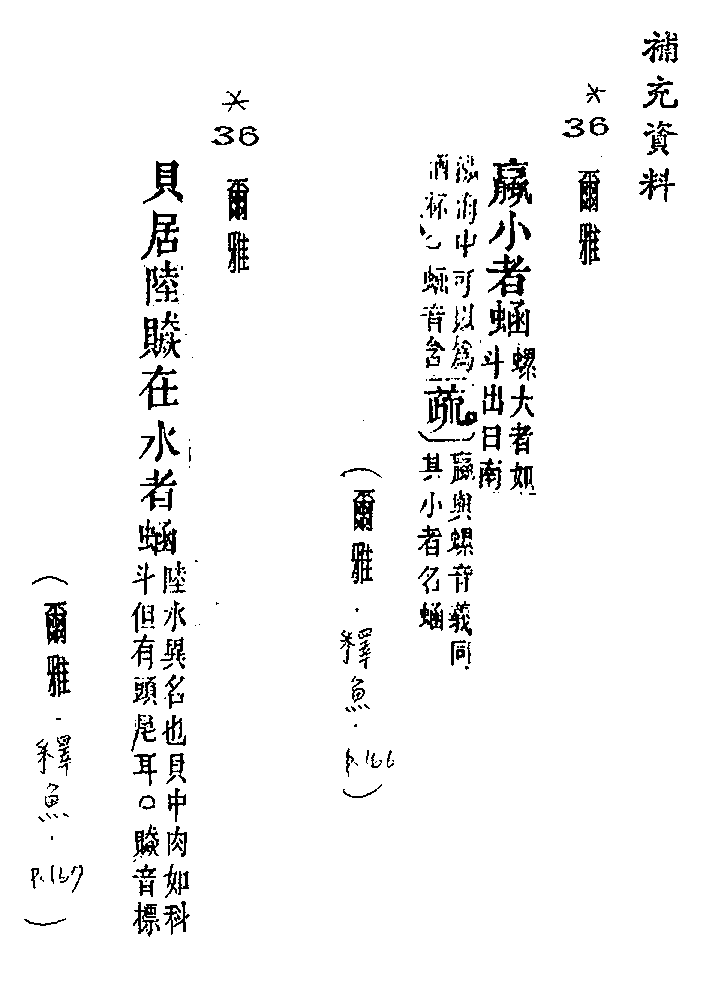 補充資料
*
36
爾雅
蠃小者蜬
螺大者如
斗出日南
漲海中可以為
酒杯。蜬音含
疏
蠃與螺音義同
其小者名蜬
(爾雅.釋魚.P.166)
*
36
爾雅
貝居陸贆在水者蜬
陸水異名也貝中肉如科
斗但有頭尾耳。贆音標
(爾雅.釋魚.P.167)